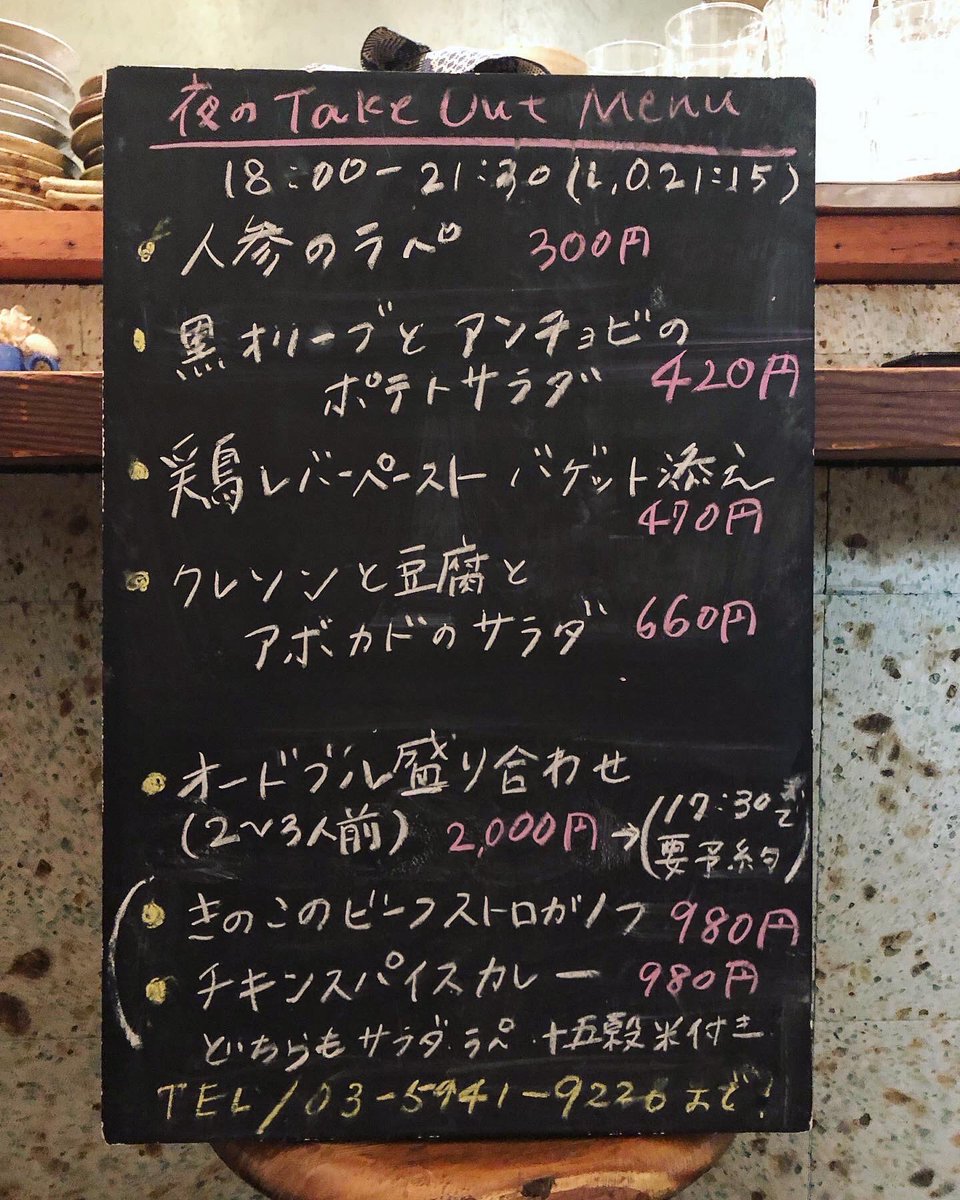 夜の Take Out Menu
18:00-21:30(L,O.21:15)
人参のラペ 300円
黒オリーブとアンチョビの
ポテトサラダ 420円
鶏レバーペースト バゲット添え
470円
クレソンと豆腐と
アボカドのサラダ 660円
オードブル盛り合わせ
(2~3人前) 2,000円→(17:30まで
要予約)
きのこのビーフストロガノフ 980円
チキンスパイスカレー 980円
どちらもサラダ.ラペ 十五穀米付き
TEL/03-5941-9226まで!